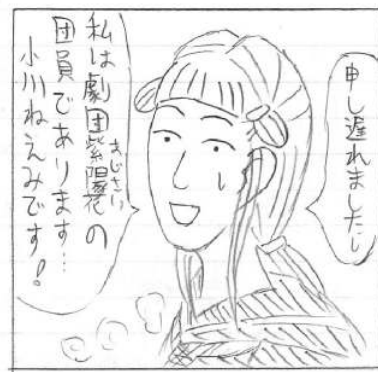 申し遅れましたし
私は劇団紫陽花の
あじさい
団員であります…
小川ねえみです!